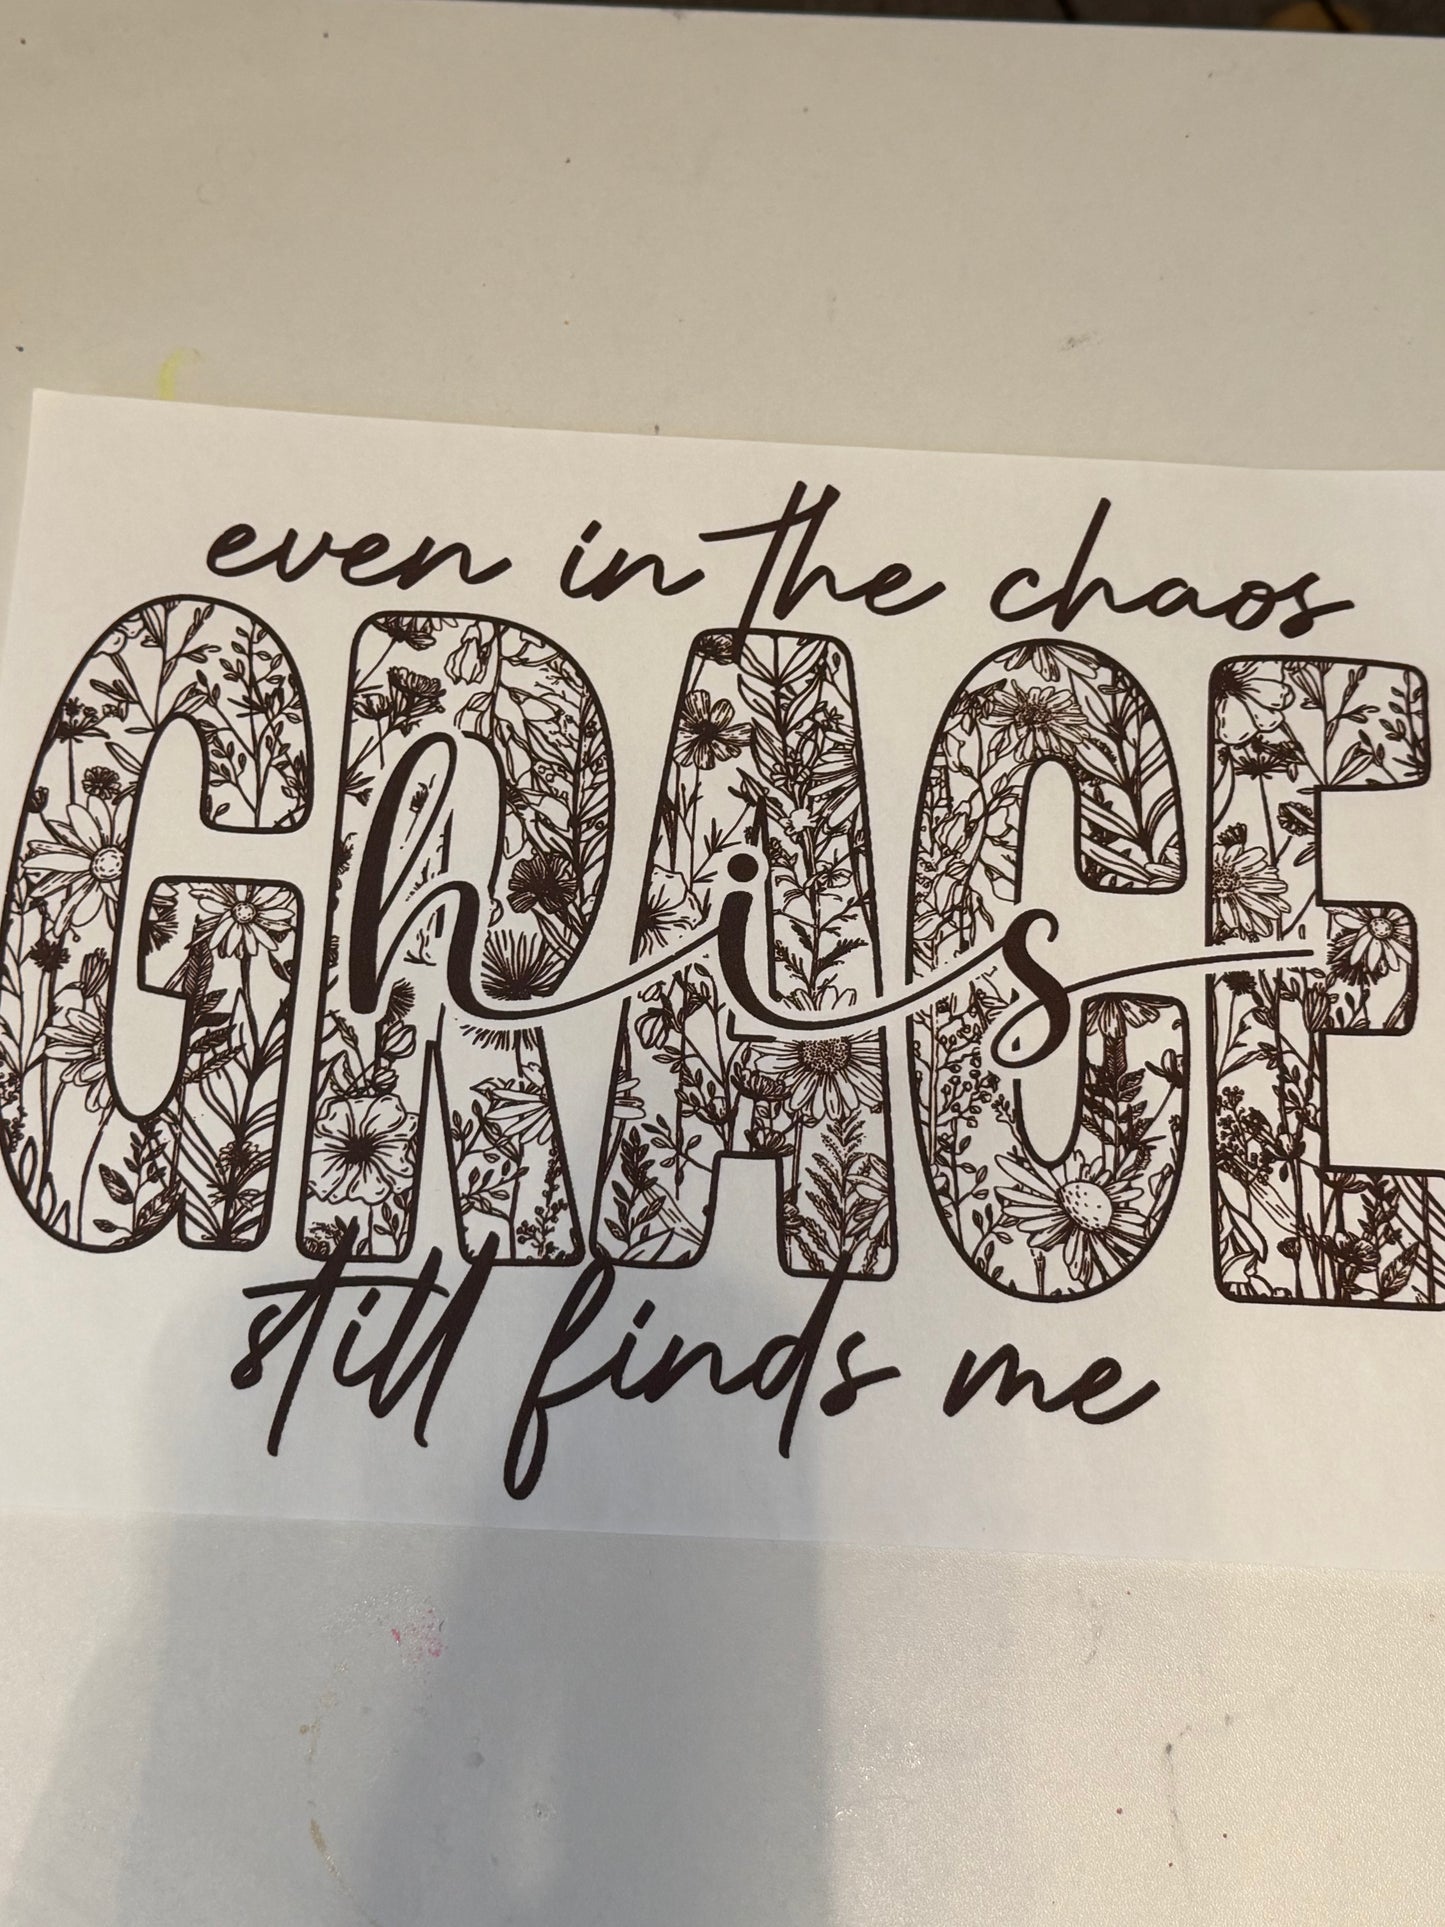 even in the chaos
his
GRACE
still finds me